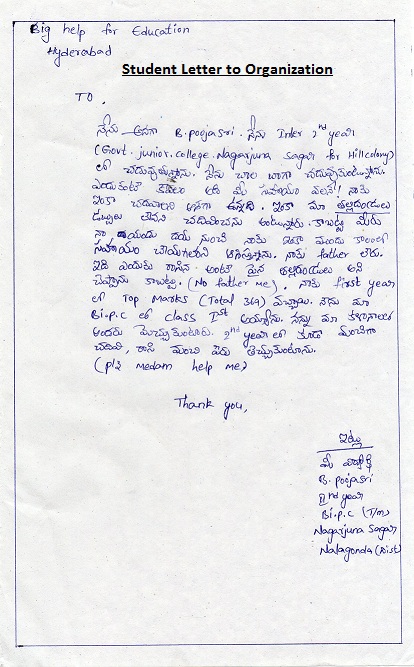 Big help for Education
Hyderabad
Student Letter to Organization
TO,
నేను అనగా B.poojasri. నేను Inter 2nd year
(Govt. junior. college. Nagarjuna sagar for Hillcolony)
లో చదువుతున్నాను. నేను చాల బాగా చదువుకుంటున్నాను.
ఎందుకంటే కేవలం మీ సహాయం వలనే!! నాకు
ఇంకా చదవాలని ఆశగా ఉన్నది. ఇంకా మా తల్లిదండ్రులు
డబ్బులు లేవని చదివించను అంటున్నారు. కాబట్టి మీరు
నా దయ నుంచి నాకు ఇంకా ముందు కాలంలో
సహాయం చేయగలరని ఆశిస్తున్నాను. నాకు father లేరు.
ఇది ఎందుకు రాసిన అంటే పైన తల్లిదండ్రులు అని
చెప్పాను కాబట్టి. (No father me). నాకు first year
లో Top Marks (Total 369) వచ్చాయి. నేను మా
Bi.p.c లో class Ist అయ్యాను. నన్ను మా
అందరు మెచ్చుకుంటారు. 2nd year లో కూడా మంచిగా
చదివి, రాసి మంచి పేరు తెచ్చుకుంటాను.
(plz medam help me)
Thank you,
ఇట్లు
మీ
B. poojasri
2nd year
Bi.p.c (T/m)
Nagarjuna Sagar
Nalagonda (Dist)